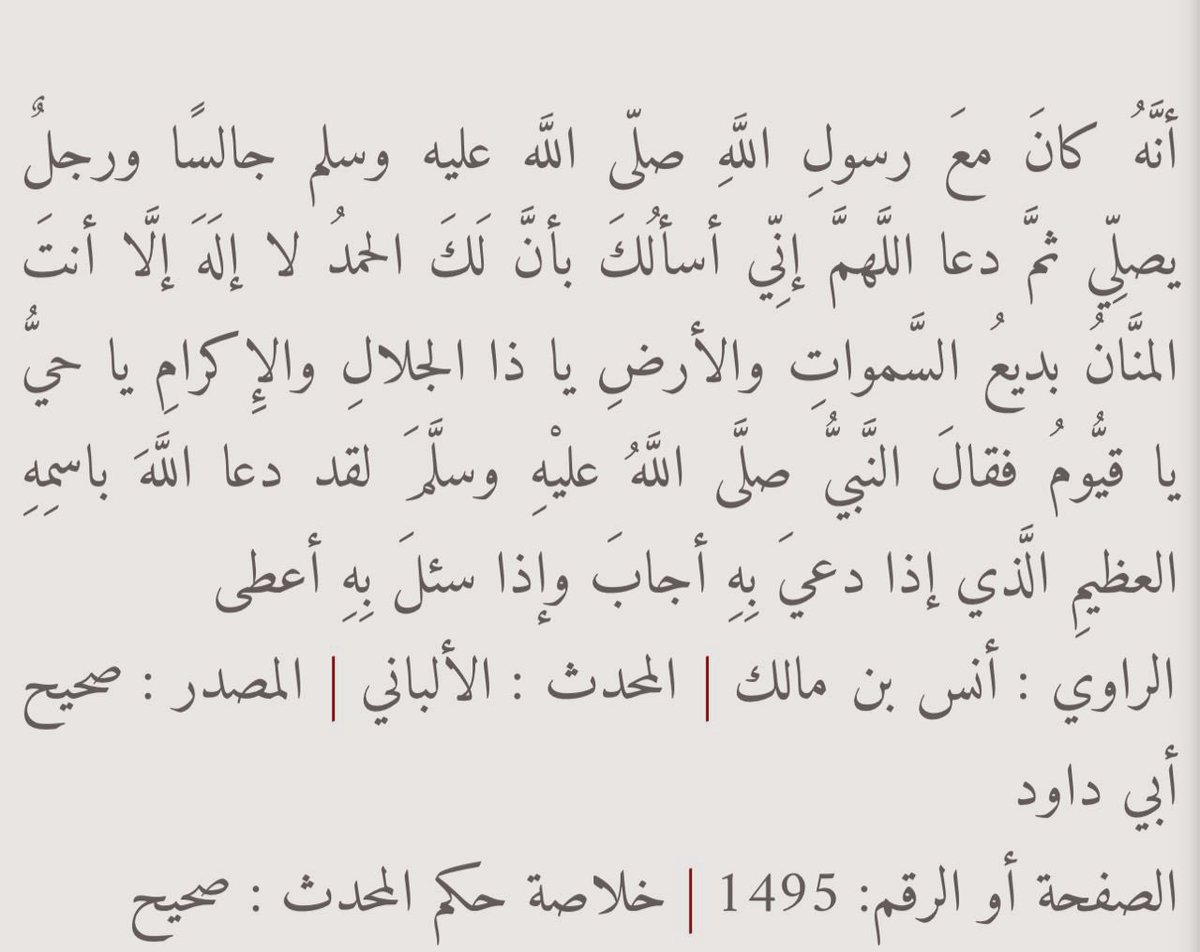 أنَّهُ كانَ معَ رسولِ اللَّهِ صلّى اللَّه عليه وسلم جالسًا ورجلٌ
يصلِّي ثمَّ دعا اللَّهمَّ إنِّي أسألُكَ بأنَّ لَكَ الحمدُ لا إلَهَ إلَّا أنتَ
المنَّانُ بديعُ السَّمواتِ والأرضِ يا ذا الجلالِ والإِكرامِ يا حيُّ
يا قيُّومُ فقالَ النَّبيُّ صلَّى اللَّهُ عليْهِ وسلَّمَ لقد دعا اللَّهَ باسمِهِ
العظيمِ الَّذي إذا دعيَ بِهِ أجابَ وإذا سئلَ بِهِ أعطى
الراوي : أنس بن مالك | المحدث : الألباني | المصدر : صحيح
أبي داود
الصفحة أو الرقم: 1495 | خلاصة حكم المحدث : صحيح